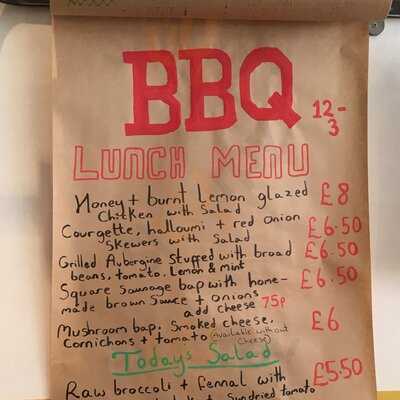 BBQ
12-
3
LUNCH MENU
Honey + burnt Lemon glazed £8
Chicken with Salad
Courgette, halloumi + red onion £6.50
Skewers with Salad
Grilled Aubergine Stuffed with broad £6.50
beans, tomato, Lemon & mint
Square Sausage bap with home- £6.50
made brown Sauce + onions
add cheese 75p
Mushroom bap, Smoked cheese, £6
Cornichons + tomato (Available without
Cheese)
Todays Salad
Raw broccoli + fennal with £5.50
Sundried tomato